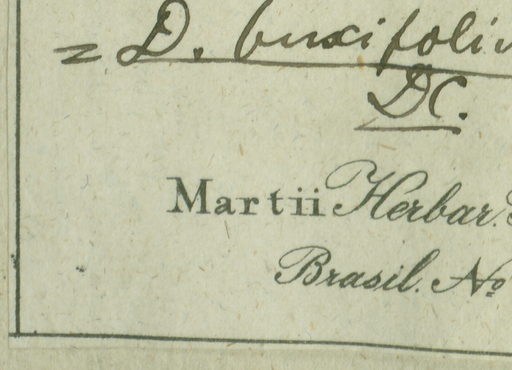 = D. buxifoliu
DC.
Martii Herbar.
Brasil. No